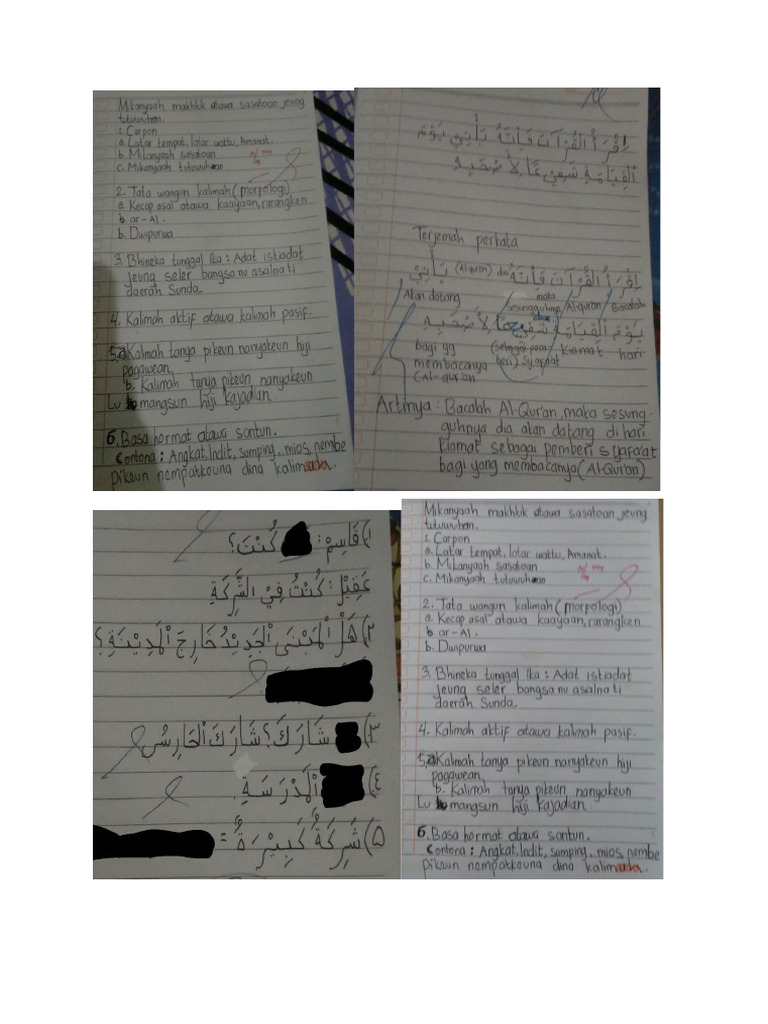 Mikanyaah makhluk atawa sasatoan jeung
tutuwuhan.
1. Carpon
a. Latar tempat, latar waktu, Amanat.
b. Mikanyaah sasatoan
c. Mikanyaah tutuwuhan
2. Tata wangun kalimah (morfologi)
a. Kecap asal atawa kaayaan, rarangken
b. ar-Al.
b. Dwipurwa
3. Bhineka tunggal Ika : Adat istiadat
jeung seler bangsa nu asalna ti
daerah Sunda.
4. Kalimah aktif atawa kalimah pasif.
5. a Kalmah tanya pikeun nanyakeun hiji
pagawean,
b. Kalimah tanya pikeun nanyakeun
Lu mangsun hiji kajadian.
6. Basa hormat atawa santun.
Contona : Angkat, Indit, sumping, mios, nembe
pikeun nempatkeuna dina kalimada.
إِقْرَأُ الْقُرْآنَ فَإِنَّهُ يَأْتِي يَوْمَ
الْقِيَامَةِ شَفِيْعًا لِأَصْحَبِهِ
Terjemah perkata
إِقْرَأُ الْقُرْآنَ فَإِنَّهُ dia (Al-qur'an) يَأْتِيْ
Akan datang maka sesungguhnya Al-quran Bacalah
يَوْمَ الْقِيَامَةِ شَفِيْعًا لِأَصْحَبِهِ
bagi yg (sebagai pem- Kiamat hari
membacanya beri) Syafaat
(Al-qur'an
Artinya : Bacalah Al-Qur'an, maka sesung-
guhnya dia akan datang di hari
kiamat sebagai pemberi syafa'at
bagi yang membacanya (Al-Qur'an)
١) قَاسِمْ : كُنْتَ؟
عَقِيْلْ : كُنْتُ فِيْ الشَّرِكَةِ
٢) هَلْ اَلْمَبْنَى الْجَدِيْدُ خَارِجَ الْمَدِيْنَةِ؟
٣) شَارَكَ؟ شَارَكَ الْحَارِسُ
٤) الْمَدْرَسَةِ
٥) شَرِكَةٌ كَبِيْرَةٌ =
Mikanyaah makhluk atawa sasatoan jeung
tutuwuhan.
1. Carpon
a. Latar tempat, latar waktu, Amanat.
b. Mikanyaah sasatoan
c. Mikanyaah tutuwuhan
2. Tata wangun kalimah (morfologi)
a. Kecap asal atawa kaayaan, rarangken
b. ar-Al.
b. Dwipurwa
3. Bhineka tunggal Ika : Adat istiadat
jeung seler bangsa nu asalna ti
daerah Sunda.
4. Kalimah aktif atawa kalimah pasif.
5. a Kalmah tanya pikeun nanyakeun hiji
pagawean,
b. Kalimah tanya pikeun nanyakeun
Lu mangsun hiji kajadian.
6. Basa hormat atawa santun.
Contona : Angkat, Indit, sumping, mios, nembe
pikeun nempatkeuna dina kalimada.